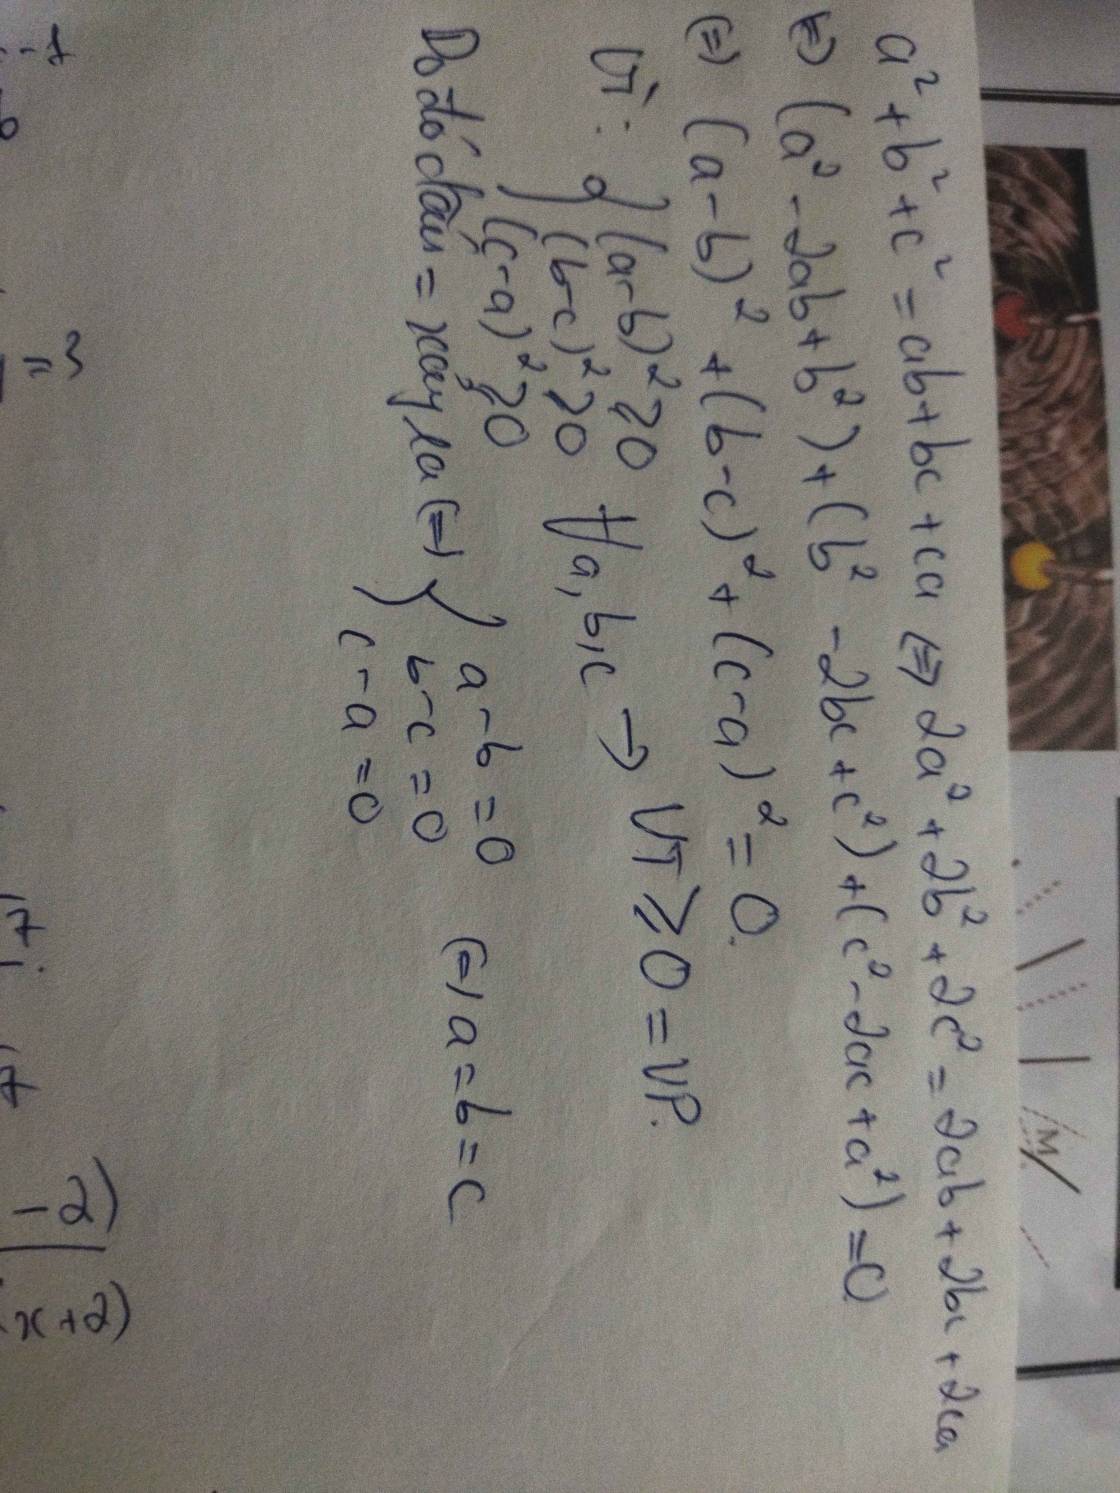 a² + b² + c² = ab + bc + ca ⇔ 2a² + 2b² + 2c² = 2ab + 2bc + 2ca
⇔ (a² - 2ab + b²) + (b² - 2bc + c²) + (c² - 2ac + a²) = 0
⇔ (a - b)² + (b - c)² + (c - a)² = 0.
Vì: { (a-b)² ≥ 0
(b-c)² ≥ 0 ∀a, b, c → VT ≥ 0 = VP.
(c-a)² ≥ 0
Do đó dấu = xảy ra ⇔ { a - b = 0
b - c = 0 ⇔ a = b = c
c - a = 0
-2)
x+2)
M